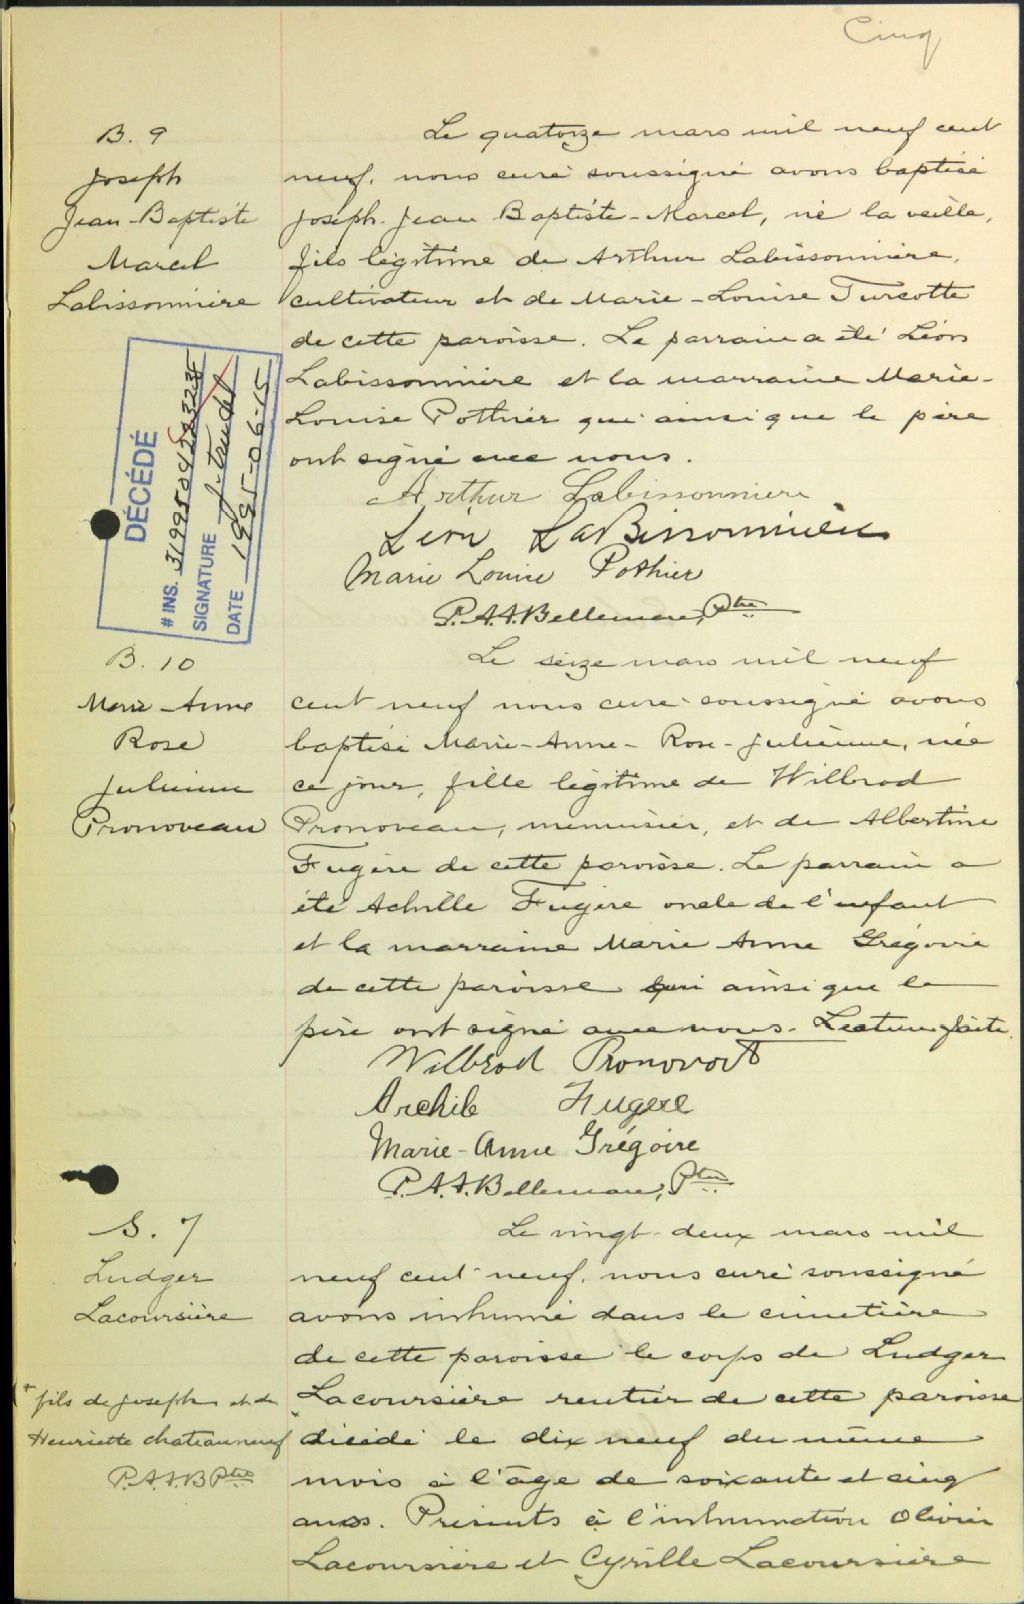 Cinq
B. 9
Joseph
Jean-Baptiste
Marcel
Labissonnière
Le quatorze mars mil neuf cent
neuf, nous curé soussigné avons baptisé
Joseph-Jean Baptiste-Marcel, né la veille,
fils légitime de Arthur Labissonnière,
cultivateur et de Marie-Louise Turcotte
de cette paroisse. Le parrain a été Léon
Labissonnière et la marraine Marie-
Louise Pothier qui ainsi que le père
ont signé avec nous.
Arthur Labissonniere
Léon LaBissonnière
Marie Louise Pothier
P.A.A.Bellemare, Ptre
DÉCÉDÉ
# INS.
SIGNATURE
DATE 1995-06-15
B. 10
Marie-Anne
Rose
Julienne
Pronoveau
Le seize mars mil neuf
cent neuf nous curé soussigné avons
baptisé Marie-Anne-Rose-Julienne, née
ce jour, fille légitime de Wilbrod
Pronoveau, menuisier, et de Albertine
Fugère de cette paroisse. Le parrain a
été Achille Fugère oncle de l'enfant
et la marraine Marie Anne Grégoire
de cette paroisse qui ainsi que le
père ont signé avec nous. Lecture faite.
Wilbrod Pronovost
Archile Fugere
Marie-Anne Grégoire
P.A.A.Bellemare, Ptre
S. 7
Ludger
Lacoursière
+ fils de Joseph et de
Henriette Chateauneuf
P.A.A.B Ptre
Le vingt-deux mars mil
neuf cent neuf, nous curé soussigné
avons inhumé dans le cimetière
de cette paroisse le corps de Ludger
Lacoursière rentier de cette paroisse
+ décédé le dix neuf du même
mois à l'âge de soixante et cinq
ans. Présents à l'inhumation Olivier
Lacoursière et Cyrille Lacoursière